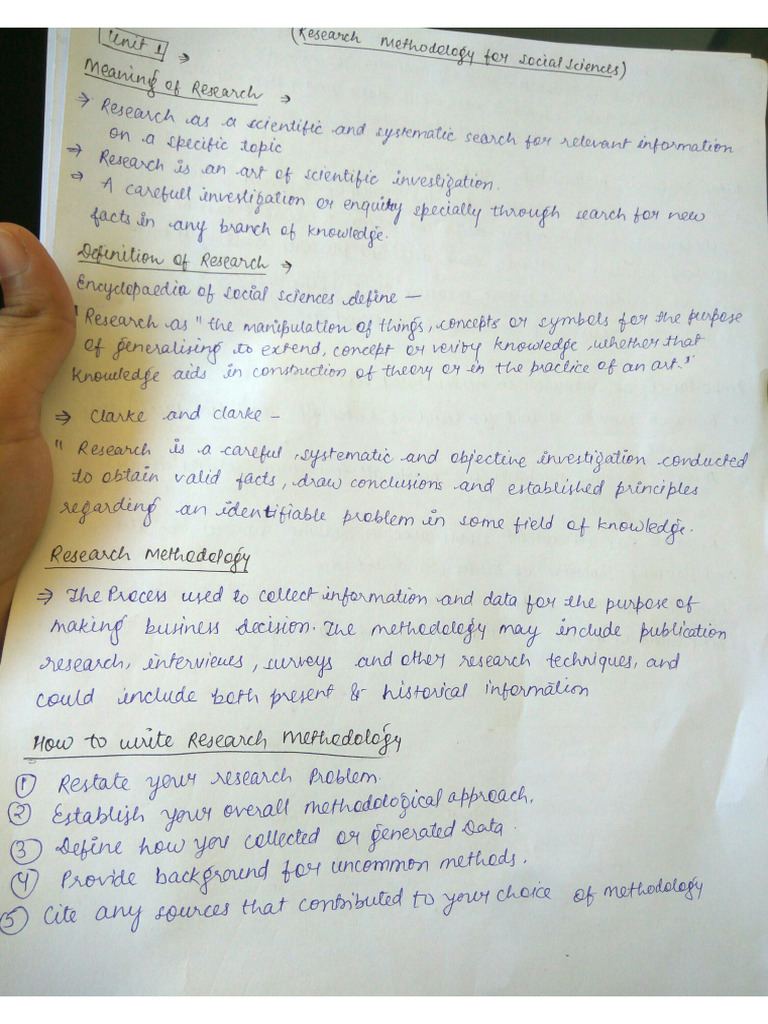 Unit 1 ⇒ (Research Methodology for Social Sciences)
Meaning of Research →
→ Research as a scientific and systematic search for relevant information
on a specific topic
→ Research is an art of scientific investigation.
→ A carefull investigation or enquity specially through search for new
facts in any branch of knowledge.
Definition of Research →
Encyclopaedia of social sciences define —
" Research as " the manipulation of things, concepts or symbols for the purpose
of generalising to extend, concept or verify knowledge, whether that
knowledge aids in construction of theory or in the practice of an art."
⇒ Clarke and clarke –
" Research is a careful, systematic and objective investigation conducted
to obtain valid facts, draw conclusions and established principles
regarding an identifiable problem in some field of knowledge.
Research Methodology
⇒ The Process used to collect information and data for the purpose of
making business decision. The methodology may include publication
research, interviews, surveys and other research techniques, and
could include both present & historical information
How to write Research Methodology
① Restate your research Problem.
② Establish your overall methodological approach.
③ Define how you collected or generated Data.
④ Provide background for uncommon methods.
⑤ Cite any sources that contributed to your choice of methodology